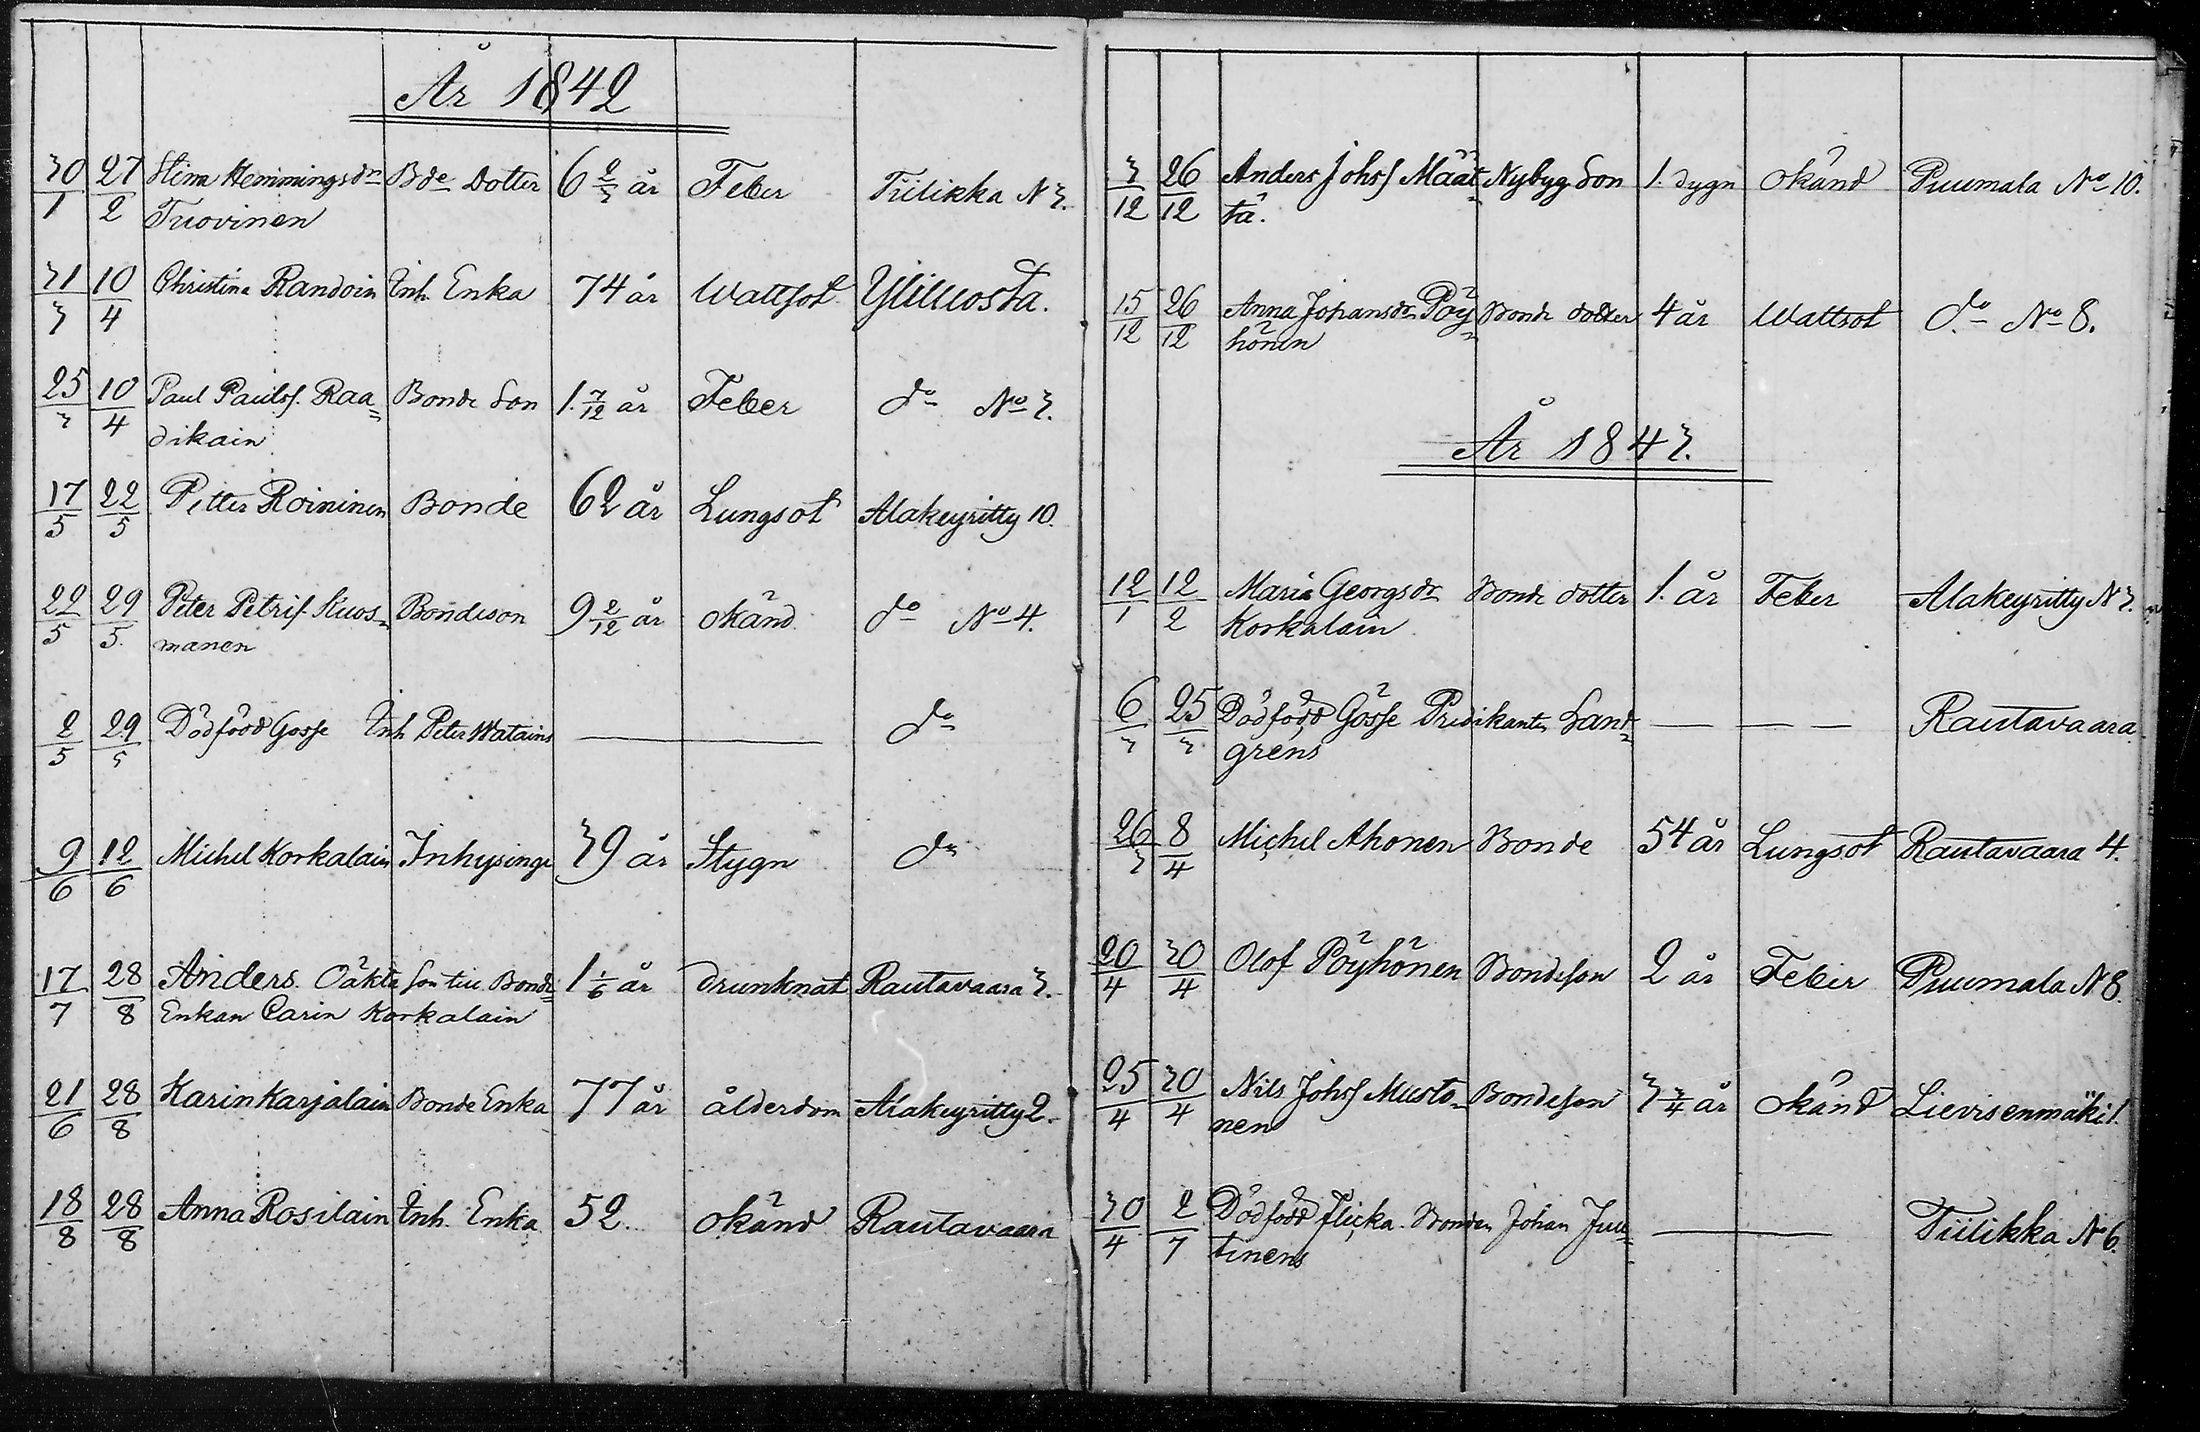 År 1842
30/1 27/2 Stina Hemmingsdr Bde Dotter 6 2/3 år Feber Tiilikka N 3.
Tuovinen
31/3 10/4 Christina Randoin Inh. Enka 74 år Wattsot Ylilluosta.
25/3 10/4 Paul Paulss. Raa= Bonde Son 1. 7/12 år Feber do No 3.
dikain
17/5 22/5 Petter Roininen Bonde 62 år Lungsot Alakeyritty 10.
22/5 29/5. Peter Petris. Kuos= Bondeson 9 2/12 år okänd do No 4.
manen
2/5 29/5 Dödfödd Gosse Inh Peter Watains do
9/6 12/6 Michel Korkalain Inhysinge 39 år Stygn do
17/7 28/8 Anders. Oäkta Son till Bonde= 1 1/6 år drunknat Rautavaara 3.
Enkan Carin Korkalain
21/6 28/8 Karin Karjalain Bonde Enka 77 år ålderdom Alakeyritty 2.
18/8 28/8 Anna Rosilain Inh. Enka 52. okänd Rautavaara
3/12 26/12 Anders Johss Määt= Nybyg Son 1. dygn okänd Puumala No 10.
tä.
15/12 26/12 Anna Johansdr Pöy= Bonde dotter 4 år Wattsot do No 8.
hönen
År 1843.
12/1 12/2 Maria Georgsdr Bonde dotter 1. år Feber Alakeyritty N 3.
Korkalain
6/3 25/3 Dödfödd Gosse Predikants Land= Rautavaara
grens
26/3 8/4 Michel Ahonen Bonde 54 år Lungsot Rautavaara 4.
20/4 30/4 Olof Pöyhönen Bondeson 2 år Feber Puumala N 8.
25/4 30/4 Nils Johss Musto= Bondeson 3 3/4 år okänd Lievisenmäki 1.
nen
30/4 2/7 Dödfödd flicka Bonden Johan Juu= Tiilikka No 6.
tinens